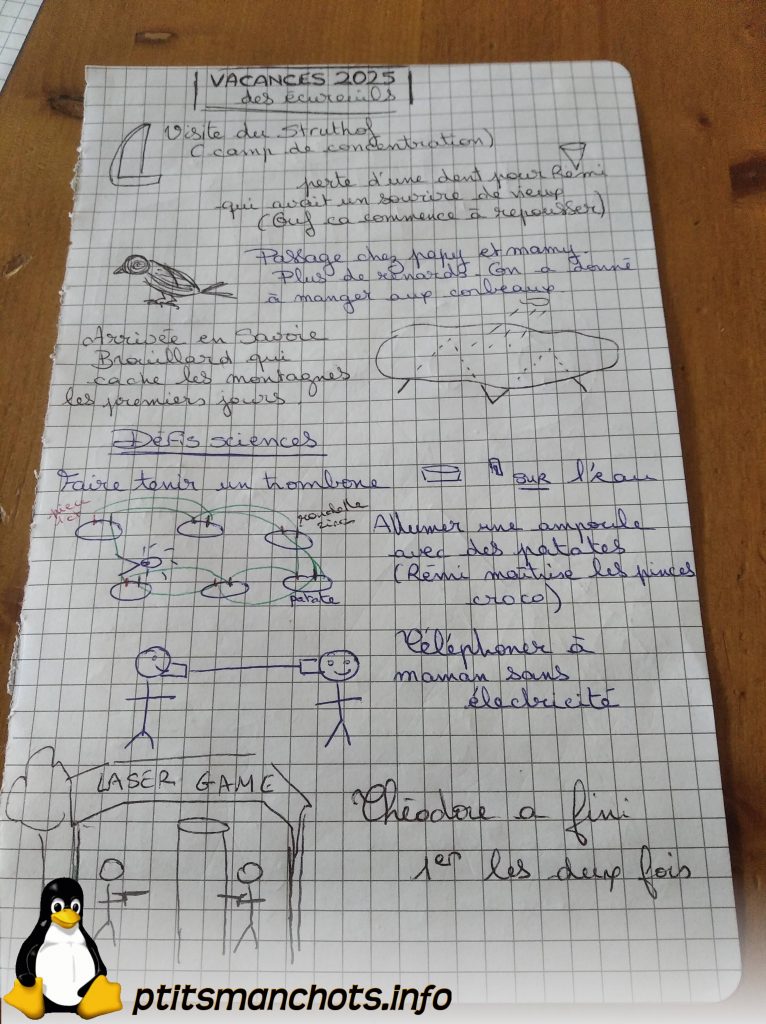 VACANCES 2025
des écureuils
Visite du Struthof
(camp de concentration)
perte d'une dent pour Rémi
qui avait un sourire de vieux
(Ouf ça commence à repousser)
Passage chez papy et mamy.
Plus de renards. On a donné
à manger aux corbeaux
Arrivée en Savoie
Brouillard qui
cache les montagnes
les premiers jours
Défis sciences
Faire tenir un trombone sur l'eau
rondelle
patate
Allumer une ampoule
avec des patates
(Rémi maîtrise les pinces
croco)
Téléphoner à
maman sans
électricité
LASER GAME
Théodore a fini
1er les deux fois
ptitsmanchots.info